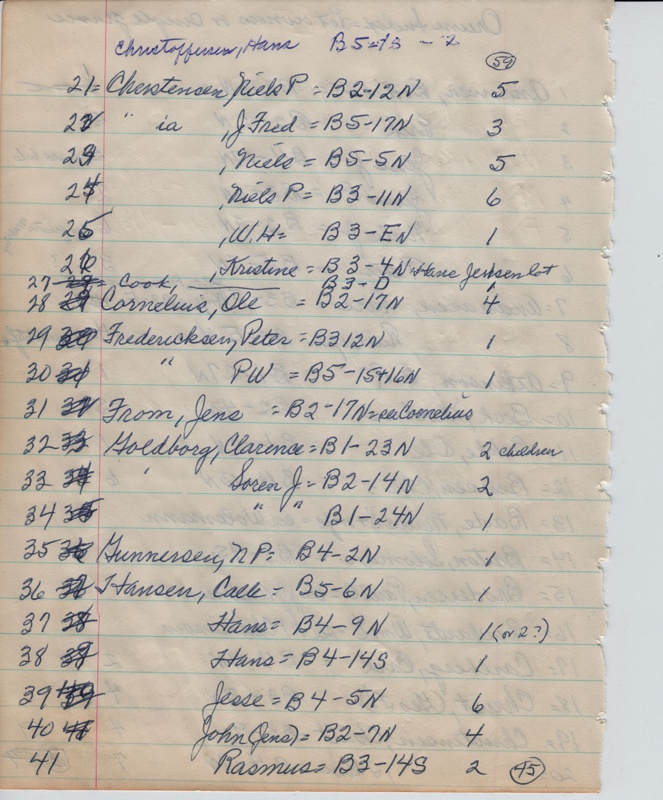 Christoffersen, Hans B5-1S - 2
59
21= Cherstensen, Niels P = B2-12N 5
22 " ia , J Fred = B5-17N 3
23 , Niels = B5-5N 5
24 , Niels P = B3-11N 6
25 , W.H= B3-EN 1
26 , Kristine = B3-4N = Hans Jensen lot
27 = Cook, B3-D 1
28 Cornelius, Ole = B2-17N 4
29 Fredericksen, Peter = B3 12N 1
30 " PW = B5-15+16N 1
31 From, Jens = B2-17N = see Cornelius
32 Goldborg, Clarence = B1-23N 2 children
33 ' Soren J = B2-14N 2
34 " " B1-24N 1
35 Gunnersen, NP = B4-2N 1
36 Hansen, Calle = B5-6N 1
37 Hans = B4-9N 1 (or 2?)
38 Hans = B4-14S 1
39 Jesse = B4-5N 6
40 John (Jens) = B2-7N 4
41 Rasmus = B3-14S 2 45